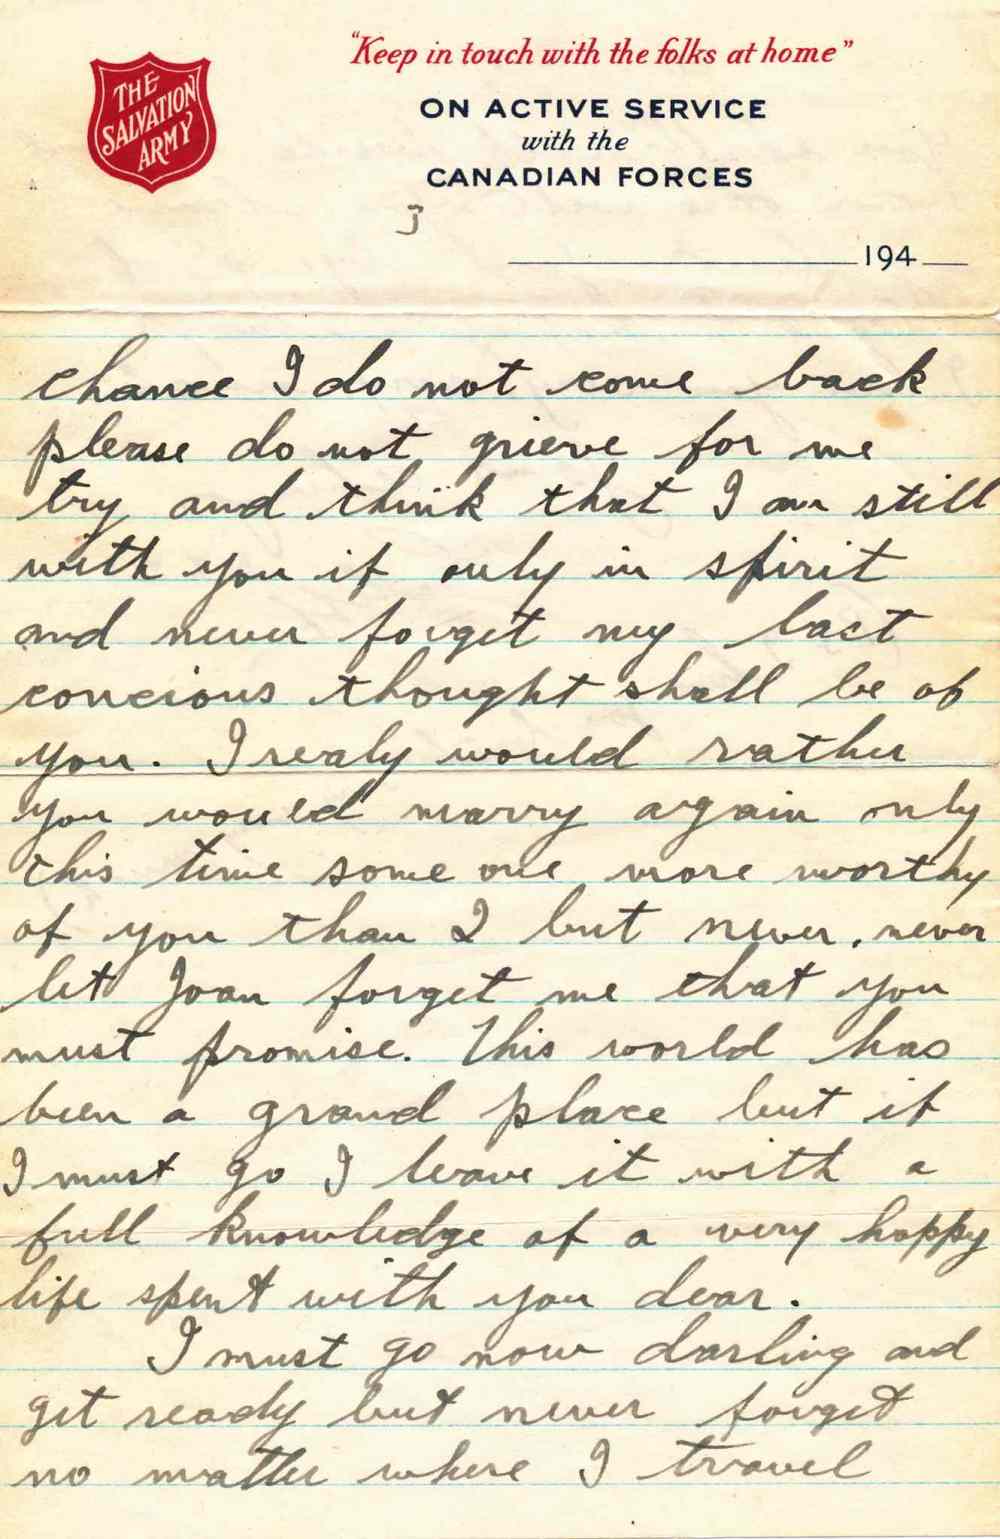 "Keep in touch with the folks at home"
THE
SALVATION
ARMY
ON ACTIVE SERVICE
with the
CANADIAN FORCES
3
194
chance I do not come back
please do not grieve for me
try and think that I am still
with you if only in spirit
and never forget my last
concious thought shall be of
you. I realy would rather
you would marry again only
this time some one more worthy
of you than I but never, never
let Joan forget me that you
must promise. This world has
been a grand place but if
I must go I leave it with a
full knowledge of a very happy
life spent with you dear.
I must go now darling and
get ready but never forget
no matter where I travel